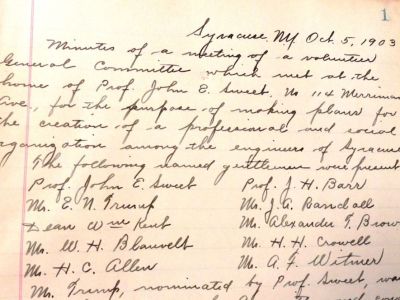 1
Syracuse NY Oct. 5, 1903
Minutes of a meeting of a volunteer
General Committee which met at the
home of Prof. John E. Sweet, No 114 Merriman
Ave., for the purpose of making plans for
the creation of a professional and social
organization among the engineers of Syracuse
The following named gentlemen were present
Prof. John E. Sweet Prof. J. H. Barr
Mr. E. N. Trump Mr. J. A. Randall
Dean Wm Kent Mr. Alexander T. Brow
Mr. W. H. Blauvelt Mr. H. H. Crowell
Mr. H. C. Allen Mr. A. F. Witmer
Mr. Trump, nominated by Prof. Sweet, was